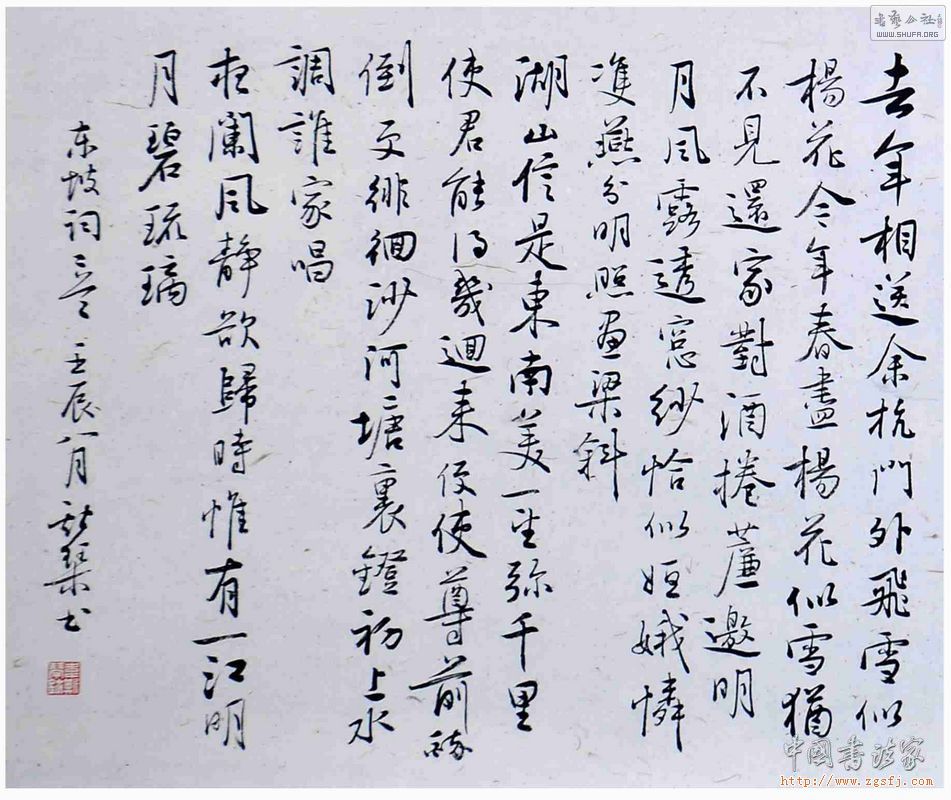 書艺公社
WWW.SHUFA.ORG
去年相送余杭門外飛雪似
楊花今年春盡楊花似雪猶
不見還家對酒捲簾邀明
月風露透窓紗恰似姮娥憐
雙燕分明照畫梁斜
湖山信是東南美一望弥千里
使君能得幾迴来便使尊前醉
倒更徘徊沙河塘裏鐙初上水
調誰家唱
夜闌風静欲歸時惟有一江明
月碧琉璃
东坡词二首 壬辰八月 书
中國书法家
http://www.zgsfj.com